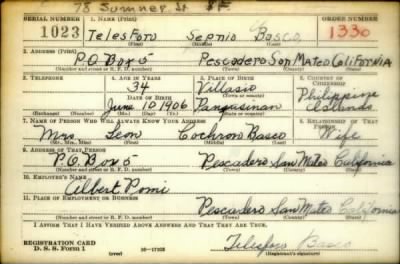 78 Sumner St SF
SERIAL NUMBER 1. NAME (Print) ORDER NUMBER
1023 TelesForo Sepnio Basco 1330
(First) (Middle) (Last)
2. ADDRESS (Print)
P.O. Box 5 Pescadero San Mateo California
(Number and street or R. F. D. number) (Town) (County) (State)
3. TELEPHONE 4. AGE IN YEARS 5. PLACE OF BIRTH 6. COUNTRY OF CITIZENSHIP
34 Villasio Philippine
DATE OF BIRTH (Town or county)
June 10 1906 Pangasinan Islands
(Exchange) (Number) (Mo.) (Day) (Yr.) (State or country)
7. NAME OF PERSON WHO WILL ALWAYS KNOW YOUR ADDRESS 8. RELATIONSHIP OF THAT PERSON
Mrs. Leon Cochron Basco Wife
(Mr., Mrs., Miss) (First) (Middle) (Last)
9. ADDRESS OF THAT PERSON
P.O. Box 5 Pescadero San Mateo California
(Number and street or R. F. D. number) (Town) (County) (State)
10. EMPLOYER'S NAME
Albert Pomi
11. PLACE OF EMPLOYMENT OR BUSINESS
Pescadero San Mateo California
(Number and street or R. F. D. number) (Town) (County) (State)
I AFFIRM THAT I HAVE VERIFIED ABOVE ANSWERS AND THAT THEY ARE TRUE.
REGISTRATION CARD
D. S. S. Form 1 (over) 16—17105 Telesforo Basco
(Registrant's signature)